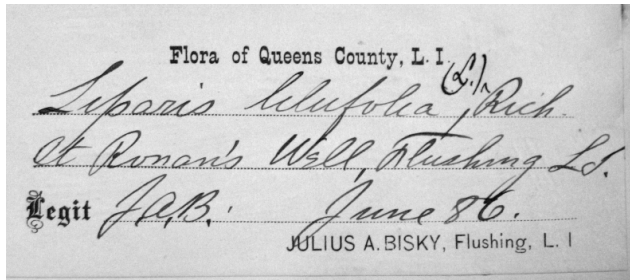 Flora of Queens County, L. I.
Liparis liliifolia (L.), Rich.
St Ronan's Well, Flushing L.I.
Legit J.A.B. June 86.
JULIUS A. BISKY, Flushing, L. I